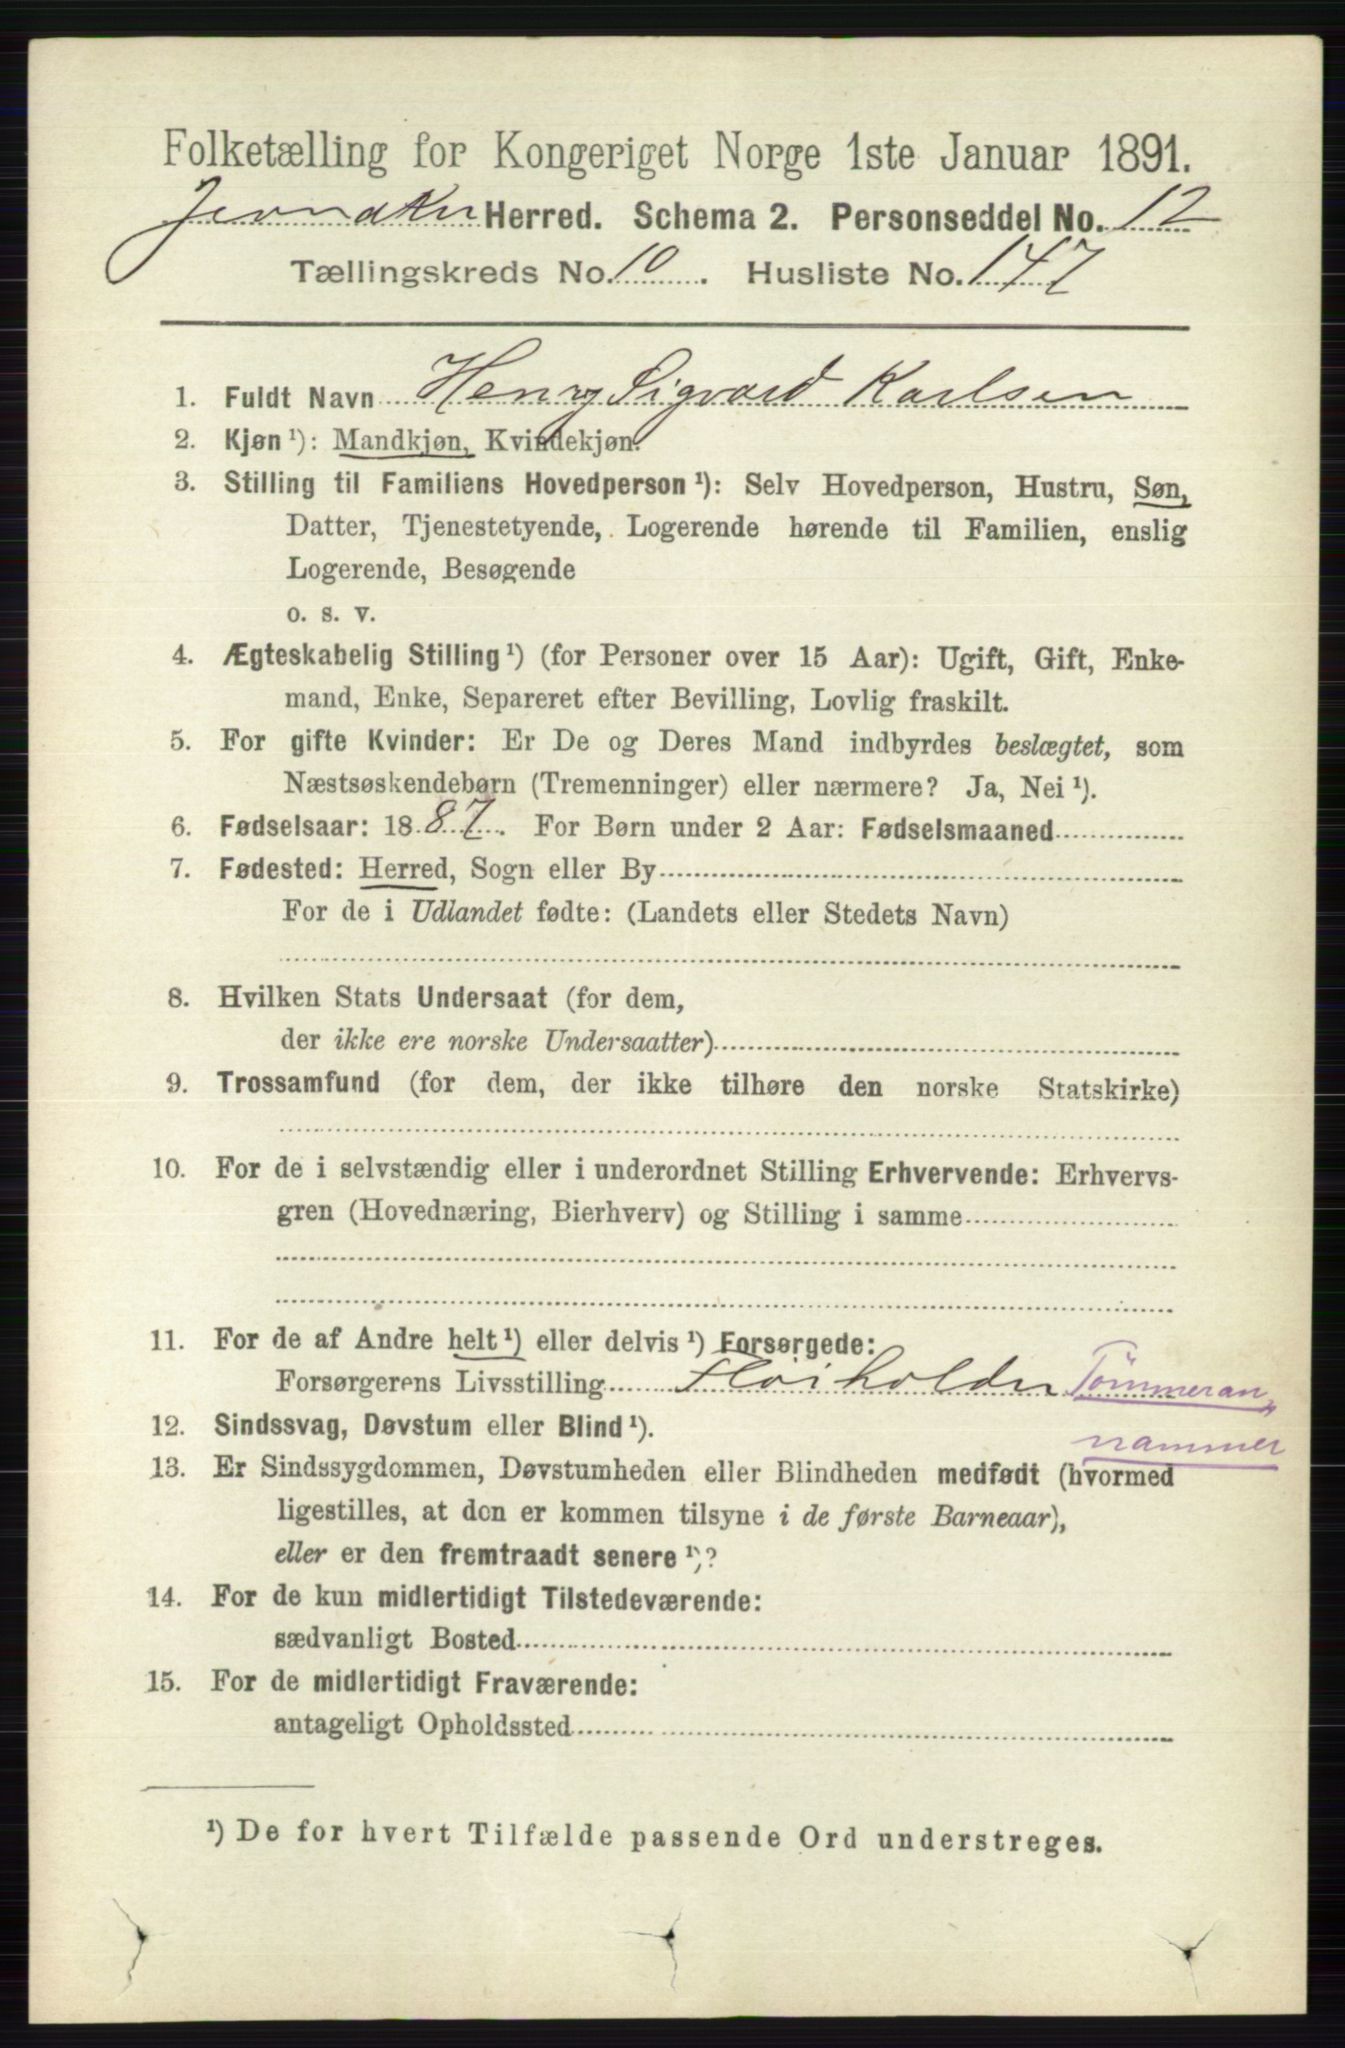 Folketælling for Kongeriget Norge 1ste Januar 1891.
Jevnaker Herred. Schema 2. Personseddel No. 12
Tællingskreds No. 10. Husliste No. 147
1. Fuldt Navn Henry Sigvard Karlsen
2. Kjøn ¹): Mandkjøn, Kvindekjøn.
3. Stilling til Familiens Hovedperson ¹): Selv Hovedperson, Hustru, Søn,
Datter, Tjenestetyende, Logerende hørende til Familien, enslig
Logerende, Besøgende
o. s. v.
4. Ægteskabelig Stilling ¹) (for Personer over 15 Aar): Ugift, Gift, Enke-
mand, Enke, Separeret efter Bevilling, Lovlig fraskilt.
5. For gifte Kvinder: Er De og Deres Mand indbyrdes beslægtet, som
Næstsøskendebørn (Tremenninger) eller nærmere? Ja, Nei ¹).
6. Fødselsaar: 1887. For Børn under 2 Aar: Fødselsmaaned
7. Fødested: Herred, Sogn eller By
For de i Udlandet fødte: (Landets eller Stedets Navn)
8. Hvilken Stats Undersaat (for dem,
der ikke ere norske Undersaatter)
9. Trossamfund (for dem, der ikke tilhøre den norske Statskirke)
10. For de i selvstændig eller i underordnet Stilling Erhvervende: Erhvervs-
gren (Hovednæring, Bierhverv) og Stilling i samme
11. For de af Andre helt ¹) eller delvis ¹) Forsørgede:
Forsørgerens Livsstilling Tømmeran
12. Sindssvag, Døvstum eller Blind ¹). nammer
13. Er Sindssygdommen, Døvstumheden eller Blindheden medfødt (hvormed
ligestilles, at den er kommen tilsyne i de første Barneaar),
eller er den fremtraadt senere ¹)?
14. For de kun midlertidigt Tilstedeværende:
sædvanligt Bosted
15. For de midlertidigt Fraværende:
antageligt Opholdssted
¹) De for hvert Tilfælde passende Ord understreges.